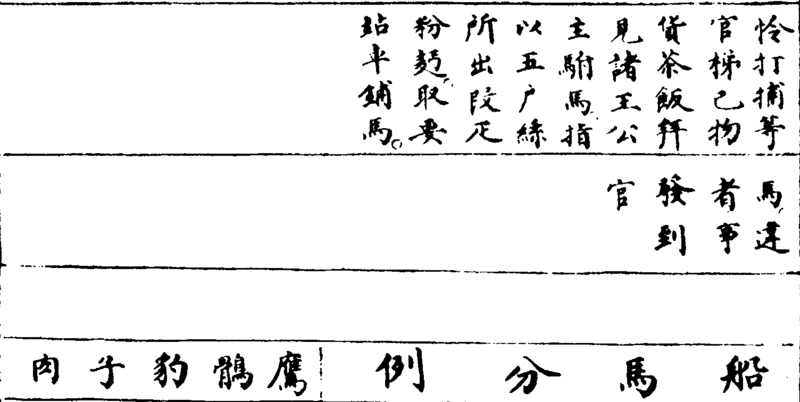 怜打捕等
官梯己物
貨茶飯拜
見諸王公
主駙馬指
以五户絲
所出段疋
粉麪取要
站車鋪馬。
馬違
者事
發到
官
船馬分例
鷹鶻豹子肉